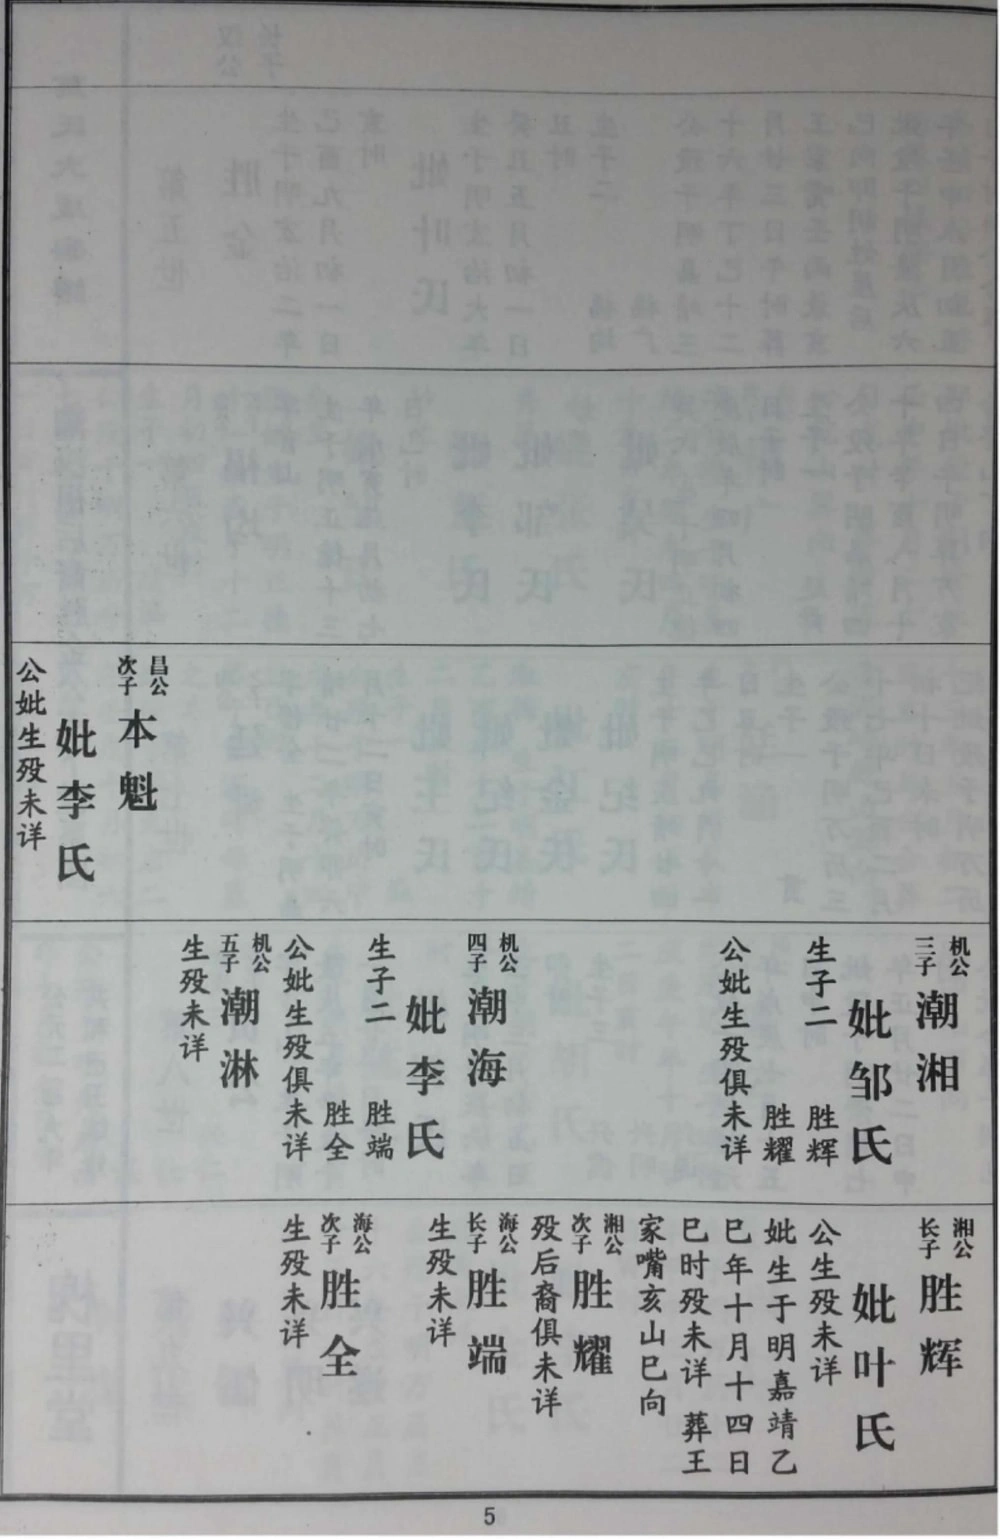 昌公
次子
本魁
妣李氏
公妣生殁未详
机公
三子
潮湘
妣邹氏
生子二 胜辉
胜耀
公妣生殁俱未详
机公
四子
潮海
妣李氏
生子二 胜端
胜全
公妣生殁俱未详
机公
五子
潮淋
生殁未详
湘公
长子
胜辉
妣叶氏
公生殁未详
妣生于明嘉靖乙
巳年十月十四日
巳时殁未详 葬王
家嘴亥山巳向
湘公
次子
胜耀
殁后裔俱未详
海公
长子
胜端
生殁未详
海公
次子
胜全
生殁未详
5